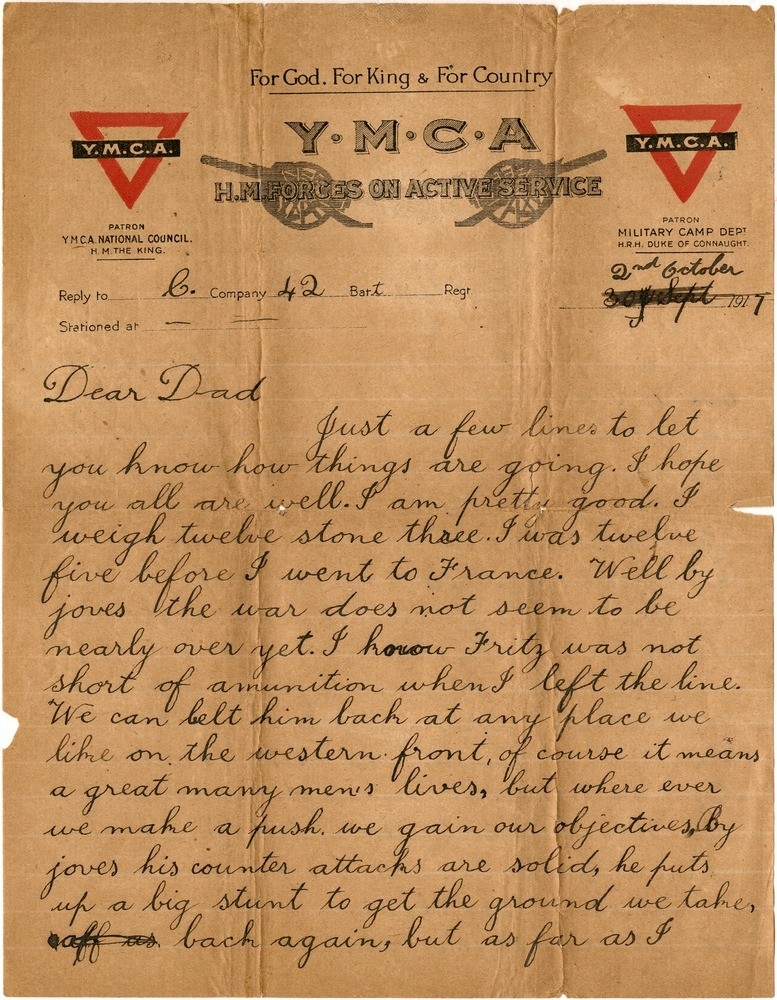 For God. For King & For Country
Y.M.C.A.
Y·M·C·A
Y.M.C.A.
H.M. FORCES ON ACTIVE SERVICE
PATRON
Y.M.C.A. NATIONAL COUNCIL.
H.M. THE KING.
PATRON
MILITARY CAMP DEPT
H.R.H. DUKE OF CONNAUGHT.
2nd October
Reply to C. Company 42 Batt Regt
30th Sept 1917
Stationed at — —
Dear Dad
Just a few lines to let
you know how things are going. I hope
you all are well. I am pretty good. I
weigh twelve stone three. I was twelve
five before I went to France. Well by
joves the war does not seem to be
nearly over yet. I know Fritz was not
short of amunition when I left the line.
We can belt him back at any place we
like on the western front, of course it means
a great many men's lives, but where ever
we make a push. we gain our objectives, By
joves his counter attacks are solid, he puts
up a big stunt to get the ground we take,
back again, but as far as I